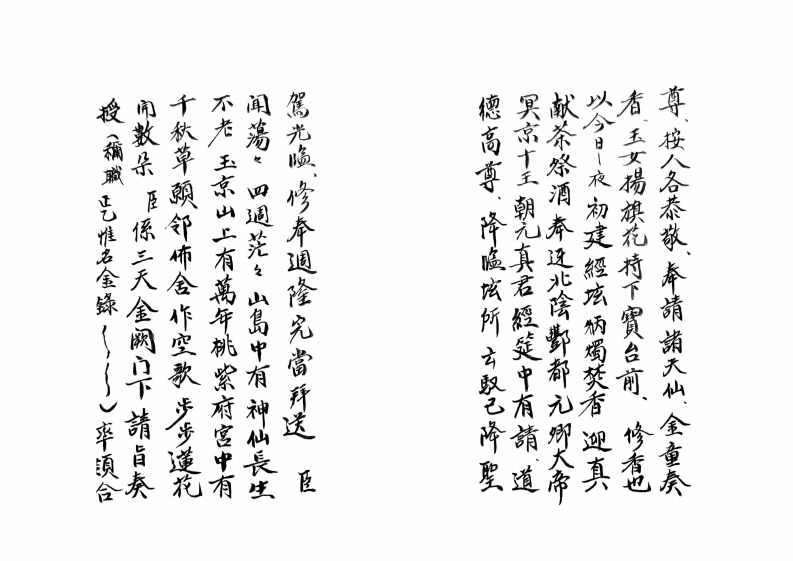 尊、按人各恭敬、奉請諸天仙、金童奏
香、玉女揚旗花持下寶台前、修香也
以今日丨夜初建經坛炳燭焚香迎真
献茶祭酒奉迓北陰酆都元卿大帝
冥京十王朝元真君經筵中有請、道
德高尊、降臨坛所玄馭已降聖
駕光臨、修奉週隆完當拜送 臣
聞蕩々四週茫々山島中有神仙長生
不老玉京山上有萬年桃紫府宮中有
千秋草顯邻佈舍作空歌步步蓮花
開數朵 臣係三天金闕门下請旨奏
授(稱職 正乙惟名金錄 〜〜〜)率領合